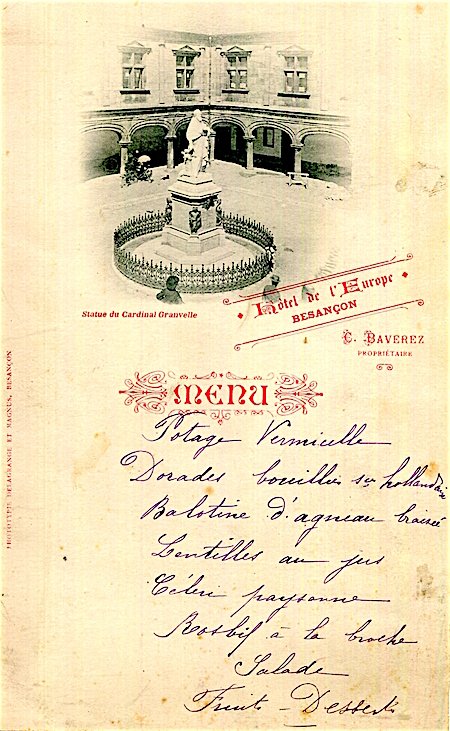 Statue du Cardinal Granvelle
Hôtel de l'Europe
BESANÇON
C. BAVEREZ
PROPRIÉTAIRE
MENU
Potage Vermicelle
Dorades bouillies sce hollandaise
Balotine d'agneau braisée
Lentilles au jus
Céleri paysanne
Rosbif à la broche
Salade
Fruits - Desserts
PHOTOTYPIE DELAGRANGE ET MAGNUS, BESANÇON